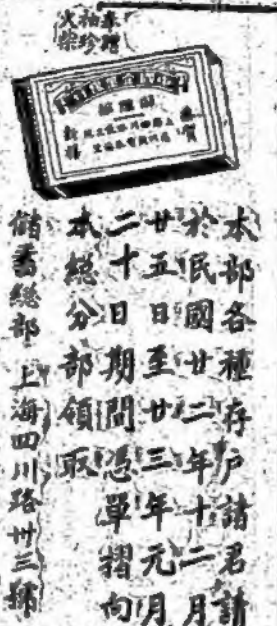 奉贈
袖珍
火柴
恭賀
新禧
本部各種存戶諸君請
於民國廿二年十二月
廿五日至廿三年元月
二十日期間憑單摺向
本總分部領取
儲蓄總部 上海四川路卅三號